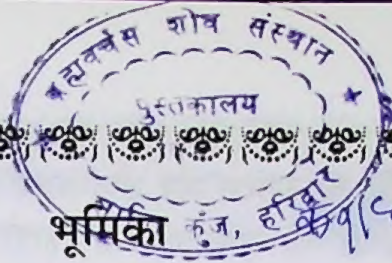 ब्रह्मवर्चस शोध संस्थान
पुस्तकालय
कुंज, हरिद्वार
भूमिका